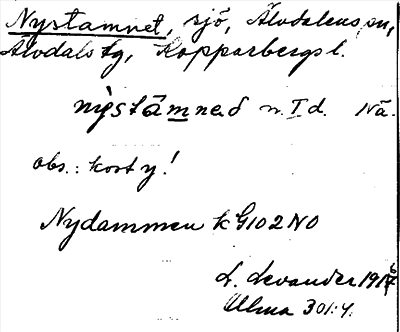 Nystamnet, sjö, Älvdalens sn,
Älvdals tg, Kopparbergs l.
nystämneð n. I d. Nä.
obs.: kort y!
Nydammen k G102NO
L. Levander 1916
Ulma 301:4.